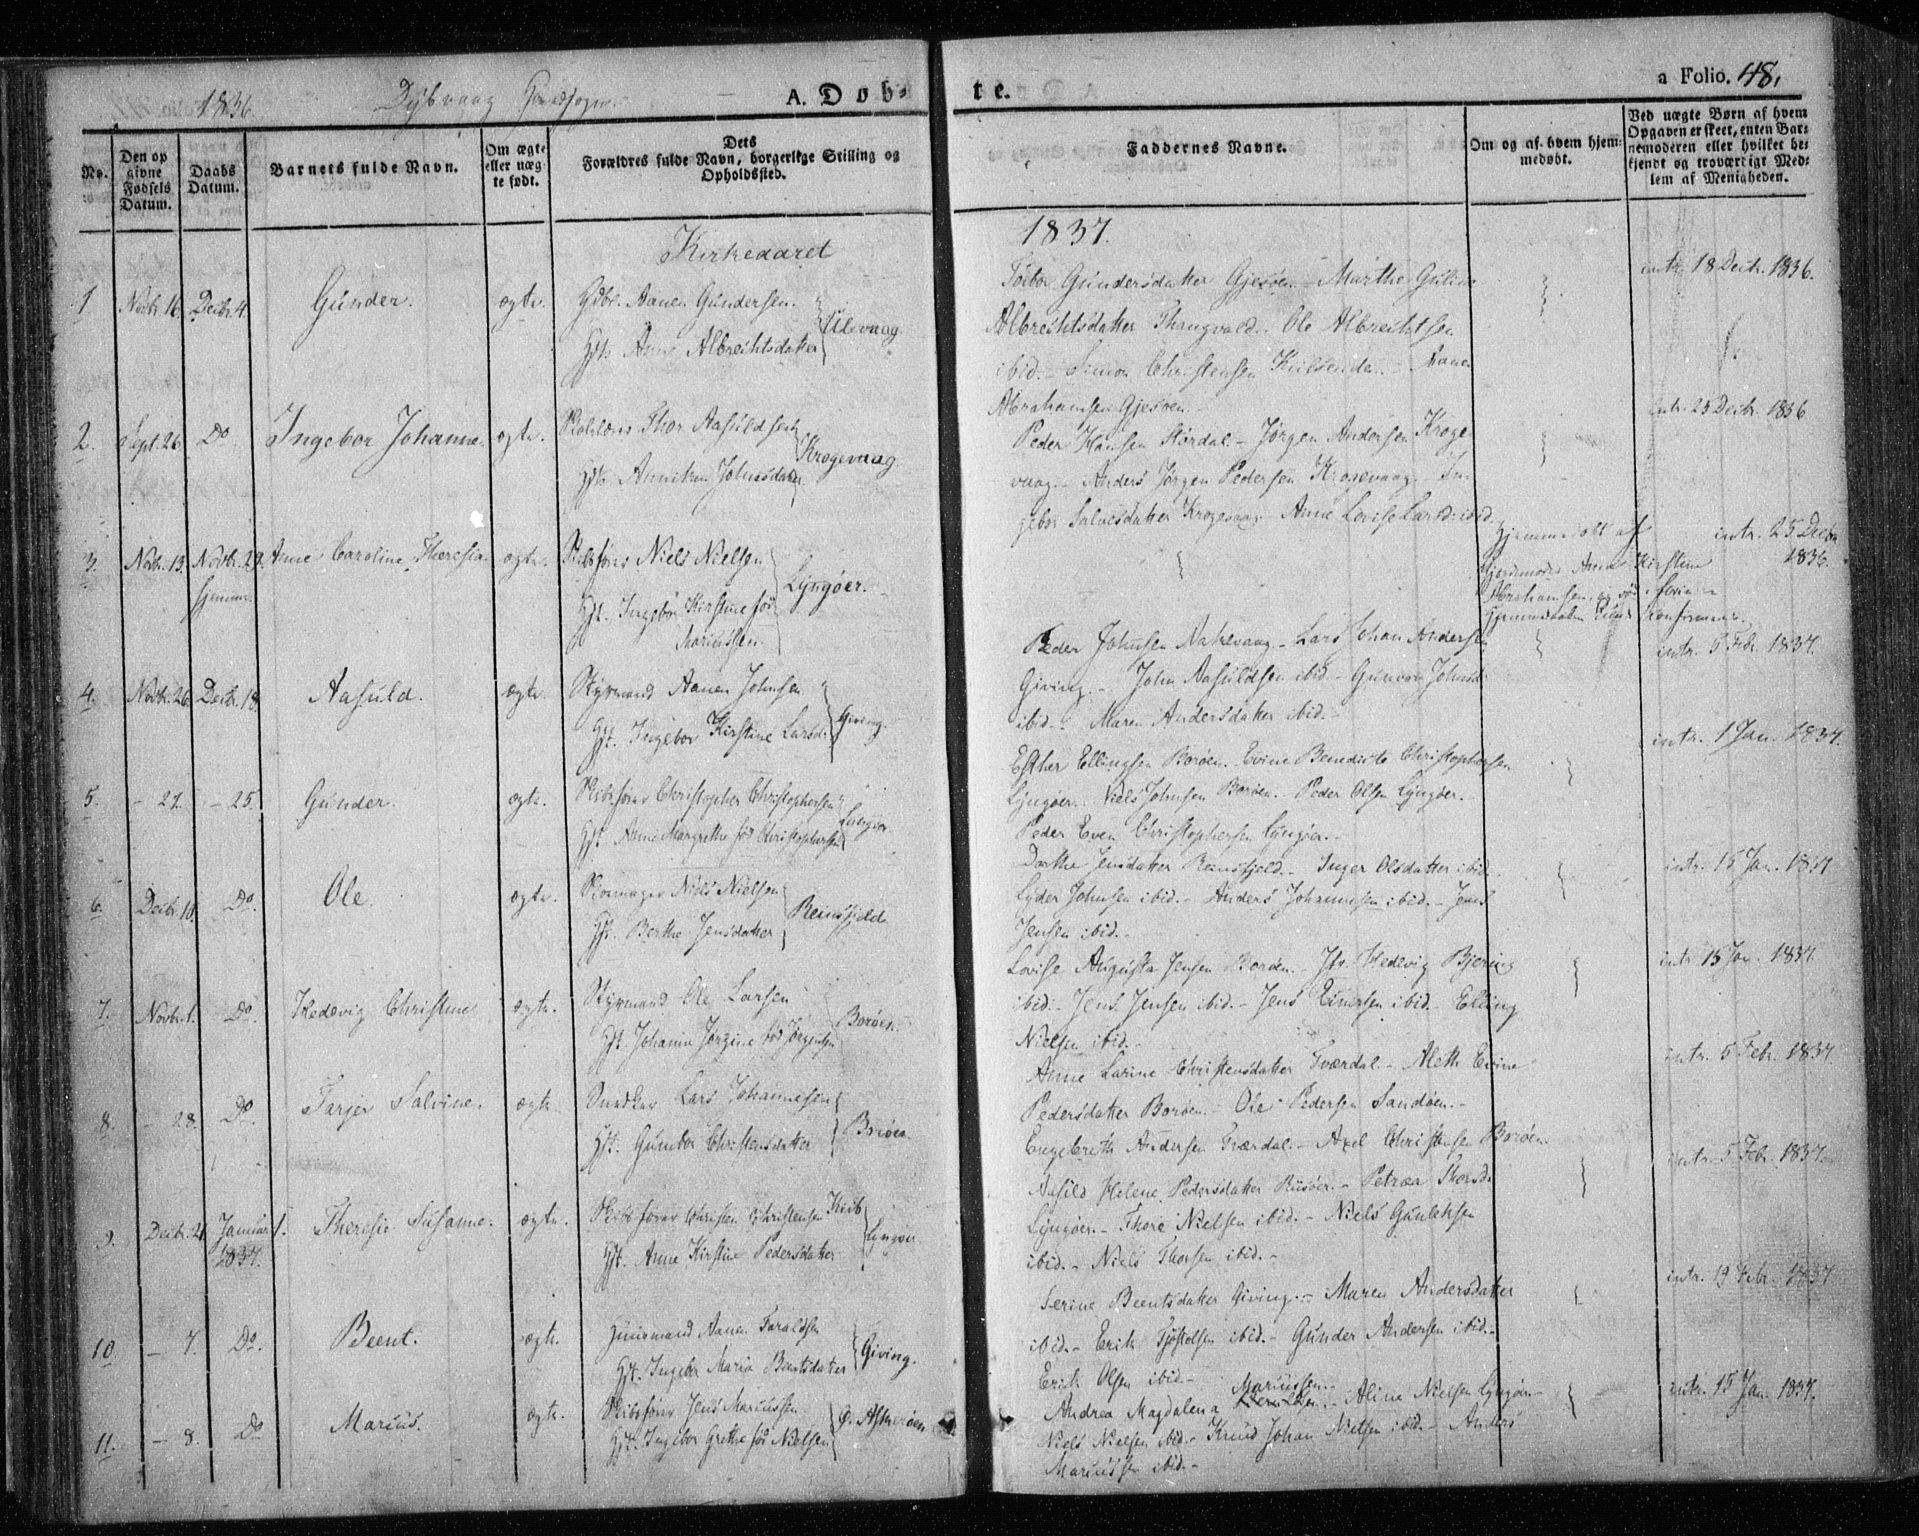 1836. Dybvaag A. Døb-
te. a Folio. 48.
No.
Den op
givne
Fødsels
Datum.
Daabs
Datum.
Barnets fulde Navn.
Om ægte
eller uæg-
te født.
Dets
Forældres fulde Navn, borgerlige Stilling og
Opholdssted.
Faddernes Navne.
Om og af hvem hjem-
medøbt.
Ved uægte Børn af hvem
Opgaven er skeet, enten Bar-
nemoderen eller hvilket be-
kjendt og troværdigt Med-
lem af Menigheden.
Kirkeaaret 1837.
1 Novbr. 16. Decbr. 4. Gunder. ægte. Gdbr. Aanen Gundersen
Hst. Anne Albrechtsdatter Ulevaag.
Gundersdatter Gjesøen - Marthe
Albrechtsdatter Thangvald. - Ole Albrechtsen
ibid. - Simon Christensen - Aanen
Abrahamsen Gjesøen.
intr. 18 Decbr. 1836.
2. Sept. 26. Do Ingebor Johanne. ægte. Thor Aasuldsen
Hst. Anniken Johnsdatter Krogevaag.
Peder Hansen Størdal. - Jørgen Andersen Kroge-
vaag. - Anders Jørgen Pedersen Krogevaag. - In-
gebor Salvesdatter Krogevaag - Anne Lovise Larsd. ibid.
intr. 25 Decbr. 1836
3. Novbr. 13. Novbr. 29. Anne Caroline Theresia. ægte. Skibsfører Niels Nielsen
hjemme.
Hst. Ingebor Kirstine fød
Mariussen Lyngøer.
Hjemmedøbt af
Gjordmoder Anne Kirstine
Abrahamsen
intr. 25 Decbr.
1836.
4. Novbr. 26. Decbr. 18. Aasuld. ægte. Styrmand Aanen Johnsen
Hst. Ingebor Kirstine Larsd. Giving.
Peder Johnsen Nakevaag - Lars Johan Andersen
Giving. - John Aasuldsen ibid. - Gunvor Johnsd.
ibid. - Maren Andersdatter ibid. -
intr. 5 Feb. 1837.
5. - 27. - 25. Gunder. ægte. Skibsfører Christopher Christophersen
Hst. Anne Margrethe fød Christophersen Lyngøer
Esther Ellingsen Borøen. - Evine Benedicte Christophersen
Lyngøer. - Niels Johnsen Borøen. - Peder Olsen Lyngøer.
Peder Even Christophersen Lyngøer. -
intr. 1 Jan. 1837.
6. Decbr. 10. Do. Ole. ægte. Skomager Niels Nielsen
Hst. Berthe Jensdatter Reinsfjeld
Dorthe Jensdatter Reinsfjeld. - Inger Olsdatter ibid.
Lyder Johnsen ibid. - Anders Johannesen ibid. - Jens
Jensen ibid. -
intr. 15 Jan. 1837
7. Novbr. 1. Do. Hedevig Christine ægte. Styrmand Ole Larsen
Hst. Johanne Jørgine fød Jørgensen Borøen.
Lovise Augusta Jensen Borøen. - Hedevig Bjering
ibid. - Jens Jensen ibid. - Jens Einersen ibid. - Elling
Nielsen ibid. -
intr. 15 Jan. 1837.
8. - 28. Do Tarjer Salvine. ægte. Snedker Lars Johannesen
Hst. Gunbor Christensdatter Borøen
Anne Larine Christensdatter Tværdal. - Aleth Evine
Pedersdatter Borøen. - Ole Pedersen Sandøen. -
Engebreth Andersen Tværdal. - Axel Christensen Borøen.
intr. 5 Febr. 1837.
9. Decbr. 21. Januar 1. Theresie Susanne. ægte. Skibsfører Christen Christensen
1837.
Hst. Anne Kirstine Pedersdatter Lyngøer
Aasild Helene Pedersdatter Risøer. - Petræa Thorsd.
Lyngøer. - Thore Nielsen ibid. - Niels
ibid. - Niels Thorsen ibid. -
intr. 5 Feb. 1837.
10. - 7. Do. Beent. ægte. Aanen Taraldsen
Hst. Ingebor Maria Beentsdatter Giving.
Serine Beentsdatter Giving. - Maren Andersdatter
ibid. - Erik Tjøstolsen ibid. - Gunder Andersen ibid. -
Erik Olsen ibid. -
intr. 19 Febr. 1837
11. - 8. Do Marius. ægte. Skibsfører Jens Mariussen
Hst. Ingebor Grethe fød Nielsen Ø. Askerøen
Andrea Magdalena Mariussen. - Aline Nielsen Lyngøer -
Niels Nielsen ibid. - Knud Johan Nielsen ibid. - Anders
Mariussen ibid. -
intr. 15 Jan. 1837.